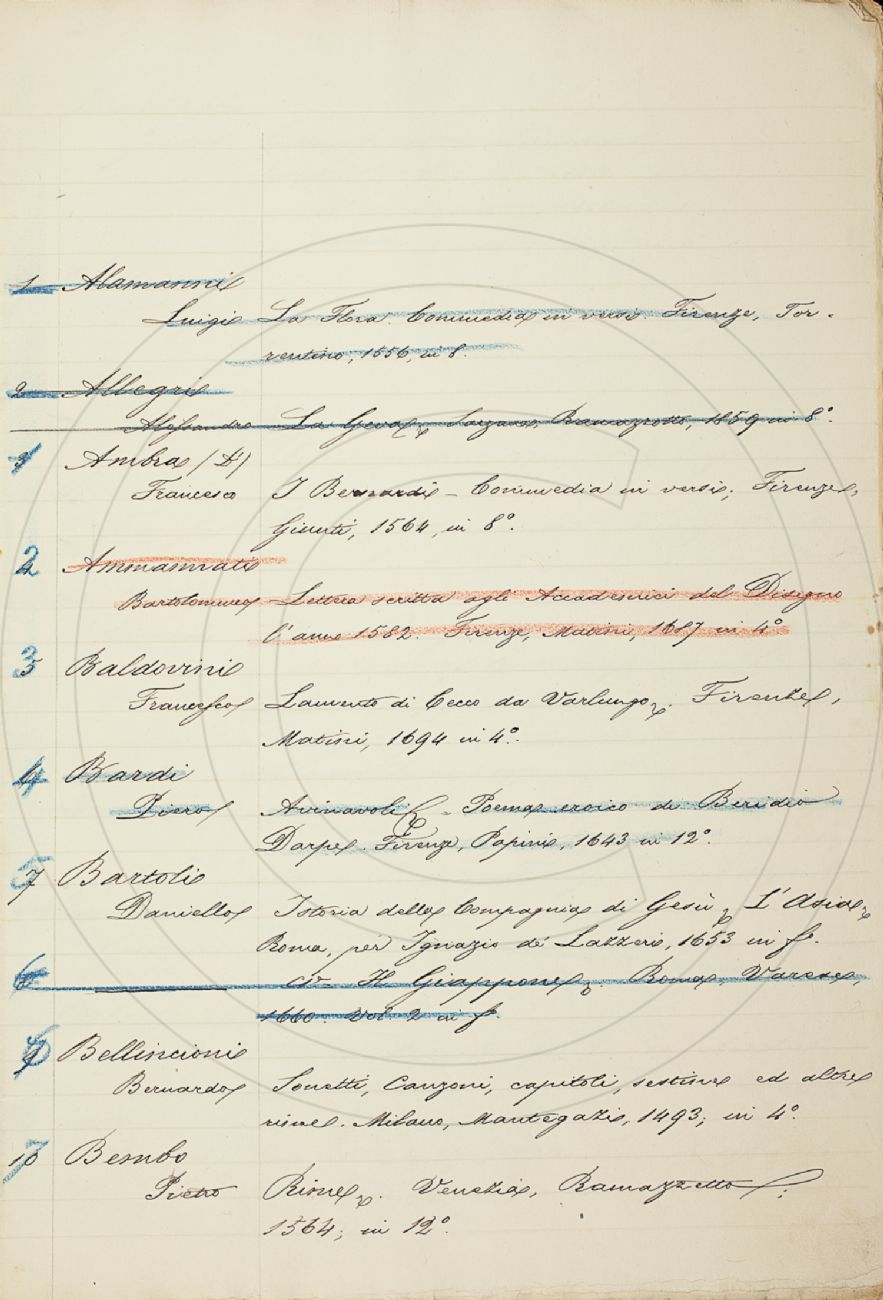 1 Alamanni
Luigi La Flora Commedia in versi. Firenze, Tor-
rentino, 1556, in 8.
2 Allegri
Alessandro La Geva, Ramazzotti, 1859 in 8°.
3 Ambra (D')
Francesco I Bernardi - Commedia in versi; Firenze,
Giunti, 1564, in 8°.
2 Ammannati
Bartolomeo Lettera scritta agli Accademici del Disegno
l'anno 1582. Firenze, Matini, 1687 in 4°
3 Baldovini
Francesco Lamento di Cecco da Varlungo. Firenze,
Matini, 1694 in 4°.
4 Bardi
Piero Avinavoli - Poema eroico di Beridio
Darpe. Firenze, Papini, 1643 in 12°.
5 7 Bartoli
Daniello Istoria della Compagnia di Gesù, L'Asia,
Roma, per Ignazio de' Lazzeri, 1653 in f.
Il Giappone. Roma, Varese,
1660. Vol. 2 in f.
Bellincioni
Bernardo Sonetti, Canzoni, capitoli, sestine ed altre
rime. Milano, Mantegazi, 1493; in 4°.
7 10 Bembo
Pietro Rime. Venezia, Ramazzetto;
1564; in 12°.